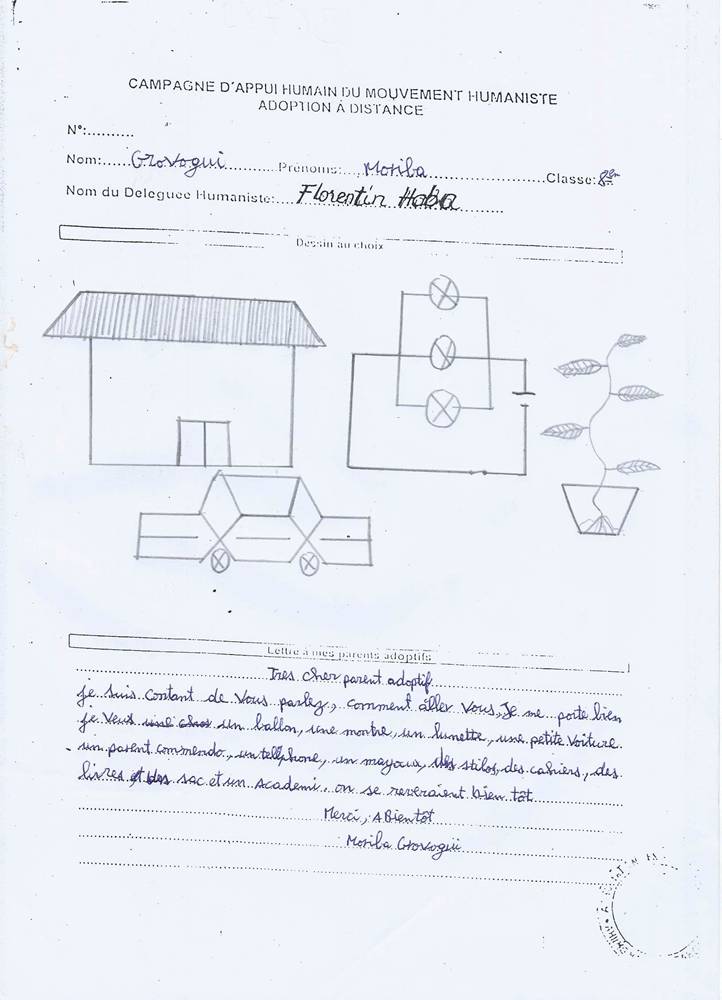 CAMPAGNE D'APPUI HUMAIN DU MOUVEMENT HUMANISTE
ADOPTION À DISTANCE
N°:..........
Nom:.....Grovogui..........Prénoms:...Moriba........................Classe:8èm
Nom du Deleguee Humaniste:...Florentin Haba........
Dessin au choix
Lettre à mes parents adoptifs
Tres cher parent adoptif
je suis contant de vous parlez, comment aller vous, Je me porte bien
je veus une chos un ballon, une montre, un lunette, une petite voiture.
un parent commendo, un tellphone, un mayoux, des stilos, des cahiers, des
livres et des sac et un academi. on se reveraient bien tôt
Merci, A Bientôt
Moriba Grovogui